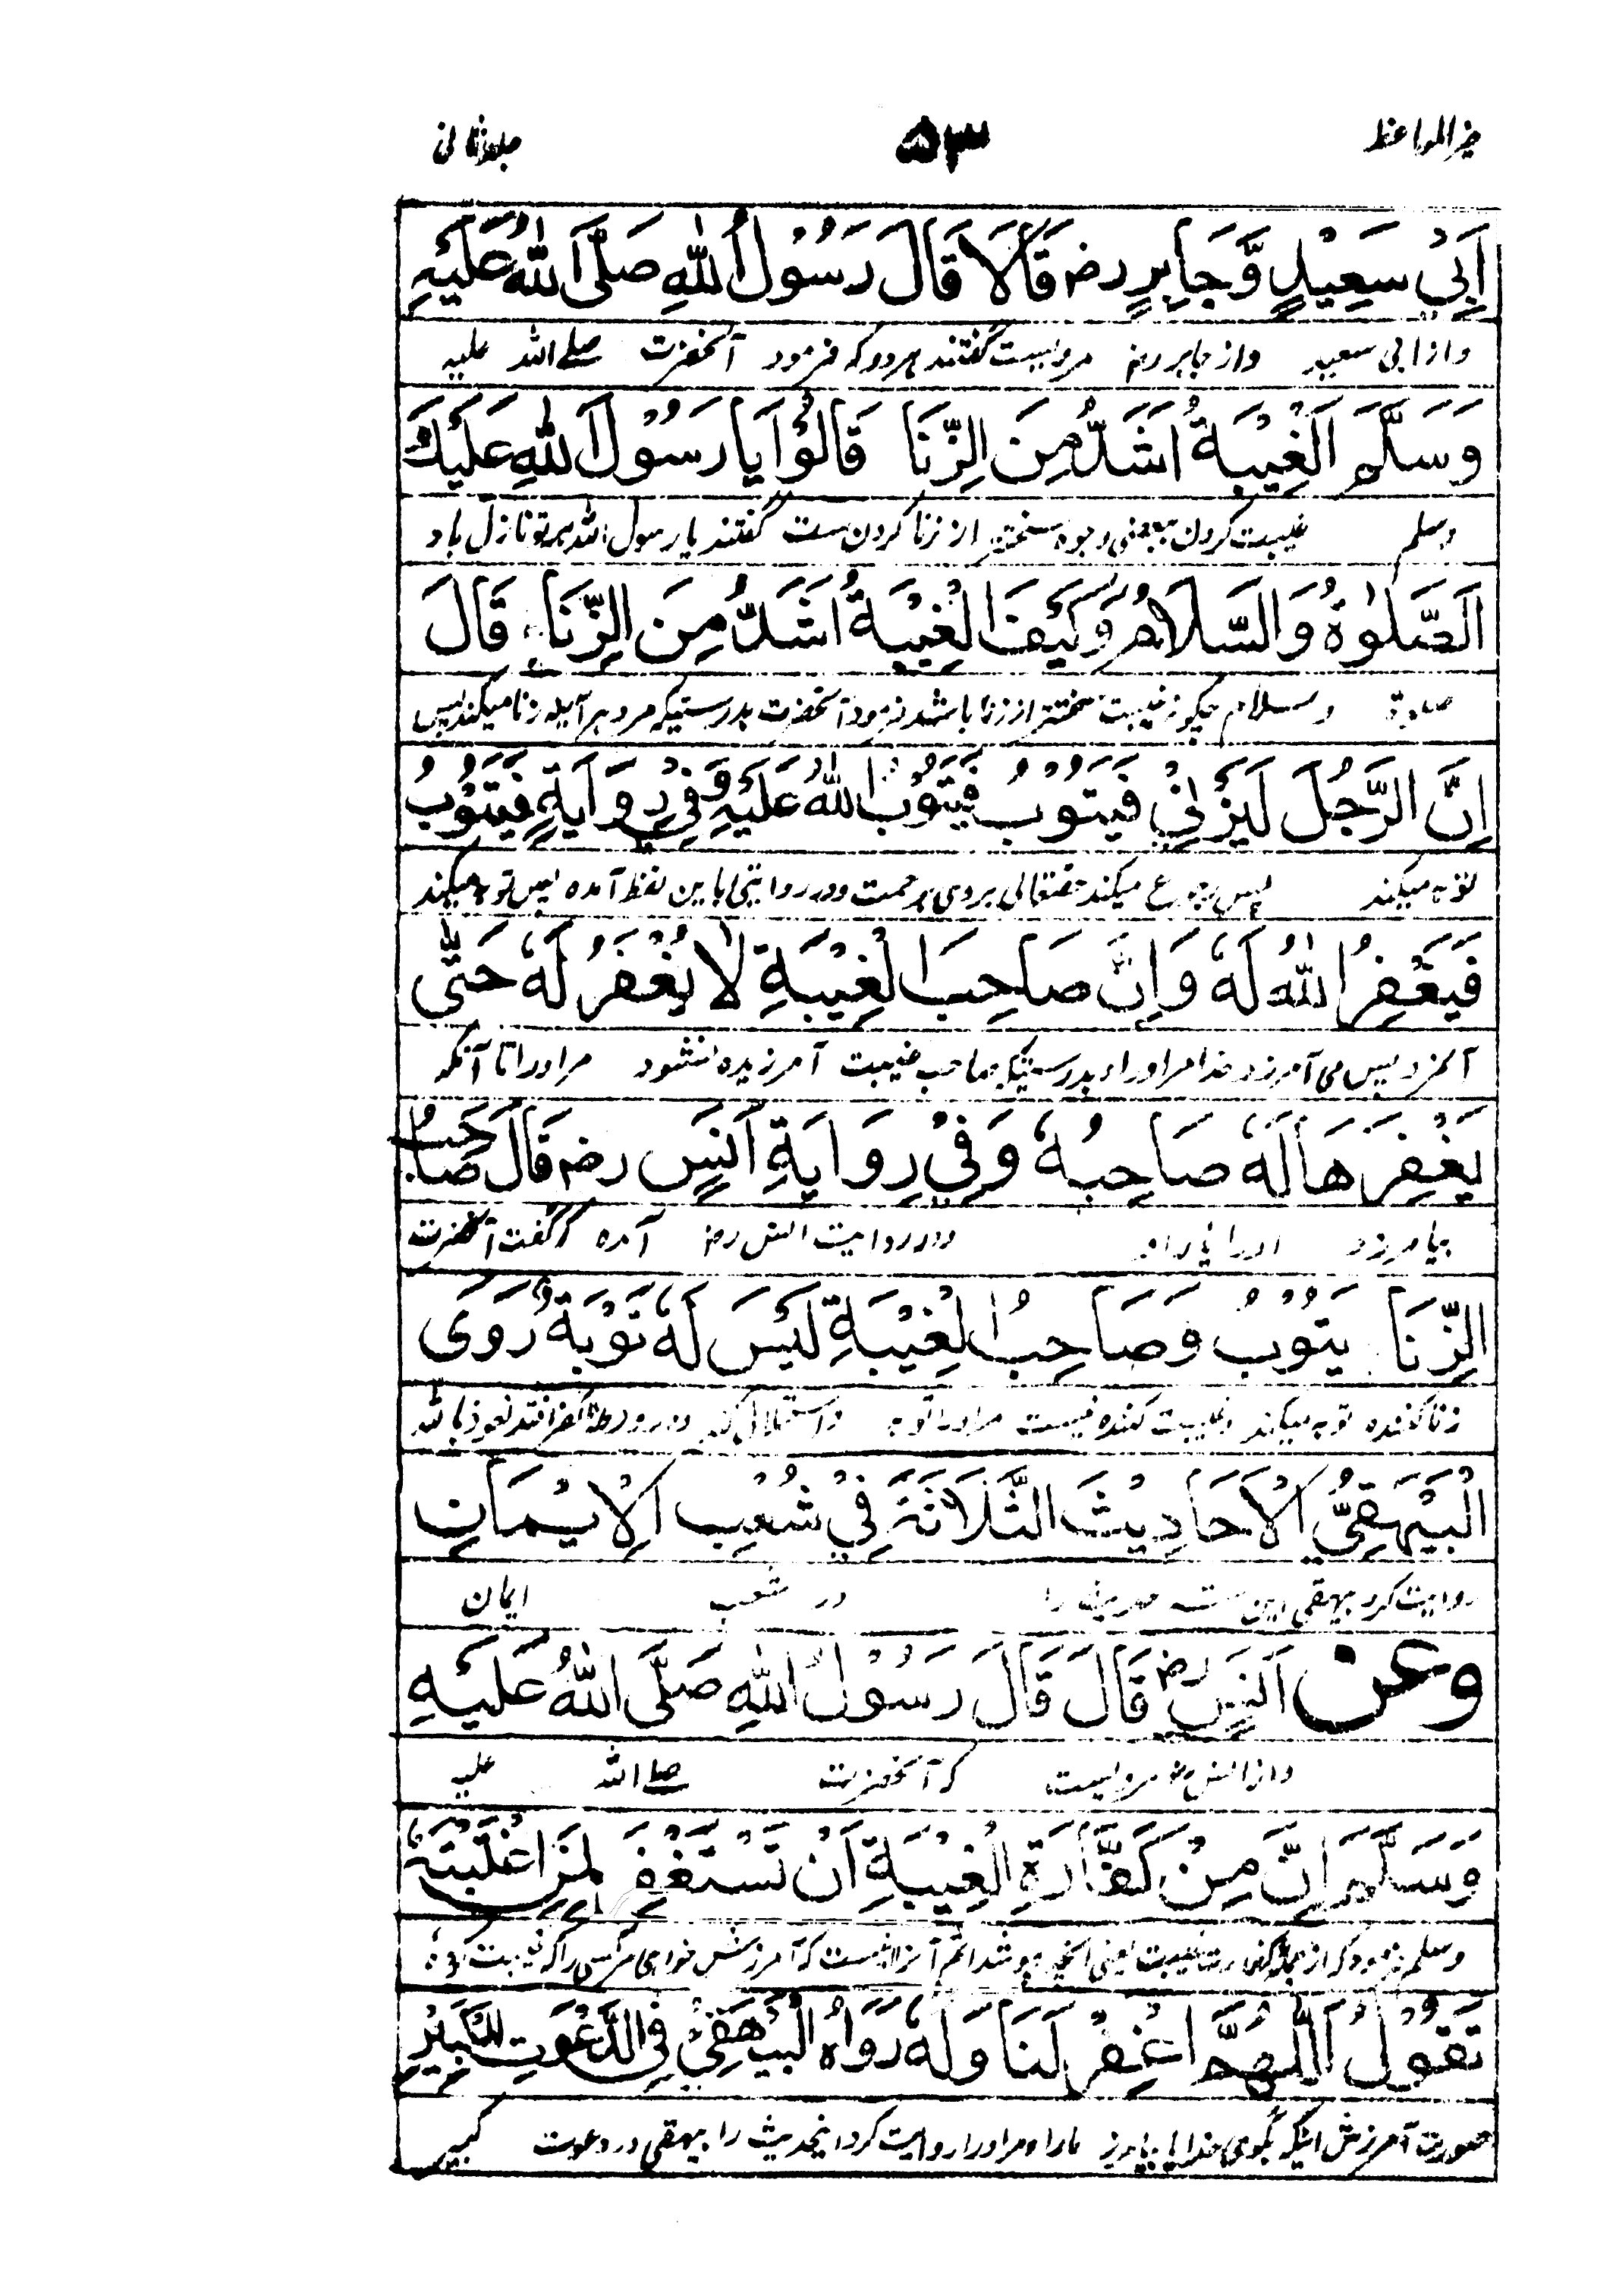 خیر المواعظ ۵۳ جلد ثانی
اَبِيْ سَعِيْدٍ وَّجَابِرٍ رض قَالَا قَالَ رَسُوْلُ اللّٰهِ صَلَّى اللّٰهُ عَلَيْهِ
و از ابی سعید و از جابر رض مرویست گفتند هر دو که فرمود آنحضرت صلے الله علیه
وَسَلَّمَ اَلْغِيْبَةُ اَشَدُّ مِنَ الزِّنَا قَالُوْا يَا رَسُوْلَ اللّٰهِ عَلَيْكَ
وسلم غیبت کردن ببعضی وجوه سخت‌تر از زنا کردن ست گفتند یا رسول الله بر تو نازل باد
اَلصَّلٰوةُ وَالسَّلَامُ وَكَيْفَ الْغِيْبَةُ اَشَدُّ مِنَ الزِّنَا قَالَ
صلوة وسلام چگونه غیبت سختتر از زنا باشد فرمود آنحضرت بدرستیکه مرد هرآینه زنا میکند پس
اِنَّ الرَّجُلَ لَيَزْنِيْ فَيَتُوْبُ فَيَتُوْبُ اللّٰهُ عَلَيْهِ وَفِيْ رِوَايَةٍ فَيَتُوْبُ
توبه میکند پس رجوع میکند حقتعالی بروی برحمت و در روایتی باین لفظ آمده پس توبه میکند
فَيَغْفِرُ اللّٰهُ لَهٗ وَاِنَّ صَاحِبَ الْغِيْبَةِ لَا يُغْفَرُ لَهٗ حَتّٰى
پس می آمرزد خدا مر اورا و بدرستیکه صاحب غیبت آمرزیده نشود مر اورا تا آنکه
يَغْفِرَهَا لَهٗ صَاحِبُهٗ وَفِيْ رِوَايَةِ اَنَسٍ رض قَالَ صَاحِبُ
بیامرزد اورا یار او و در روایت انس رض آمده که گفت آنحضرت
الزِّنَا يَتُوْبُ وَصَاحِبُ الْغِيْبَةِ لَيْسَ لَهٗ تَوْبَةٌ رَوَى
زنا کننده توبه میکند و غیبت کننده نیست مر اورا توبه در ورطه کفر افتد نعوذ بالله
الْبَيْهَقِيُّ الْاَحَادِيْثَ الثَّلَاثَةَ فِيْ شُعَبِ الْاِيْمَانِ
روایت کرد بیهقی این سه حدیث را در شعب ایمان
وعن اَنَسٍ رض قَالَ قَالَ رَسُوْلُ اللّٰهِ صَلَّى اللّٰهُ عَلَيْهِ
و از انس رض مرویست که آنحضرت صلے الله علیه
وَسَلَّمَ اِنَّ مِنْ كَفَّارَةِ الْغِيْبَةِ اَنْ تَسْتَغْفِرَ لِمَنِ اغْتَبْتَهٗ
وسلم فرمود که از جمله کفارت غیبت یعنی آنچه بپوشد اثم آنرا اینست که آمرزش خواهی مر کسی را که غیبت
تَقُوْلُ اَللّٰهُمَّ اغْفِرْ لَنَا وَلَهٗ رَوَاهُ الْبَيْهَقِيُّ فِي الدَّعَوَتِ الْكَبِيْرِ
صورت آمرزش اینکه بگوی خدایا بیامرز ما را و مر اورا روایت کرد اینحدیث را بیهقی در دعوت کبیر